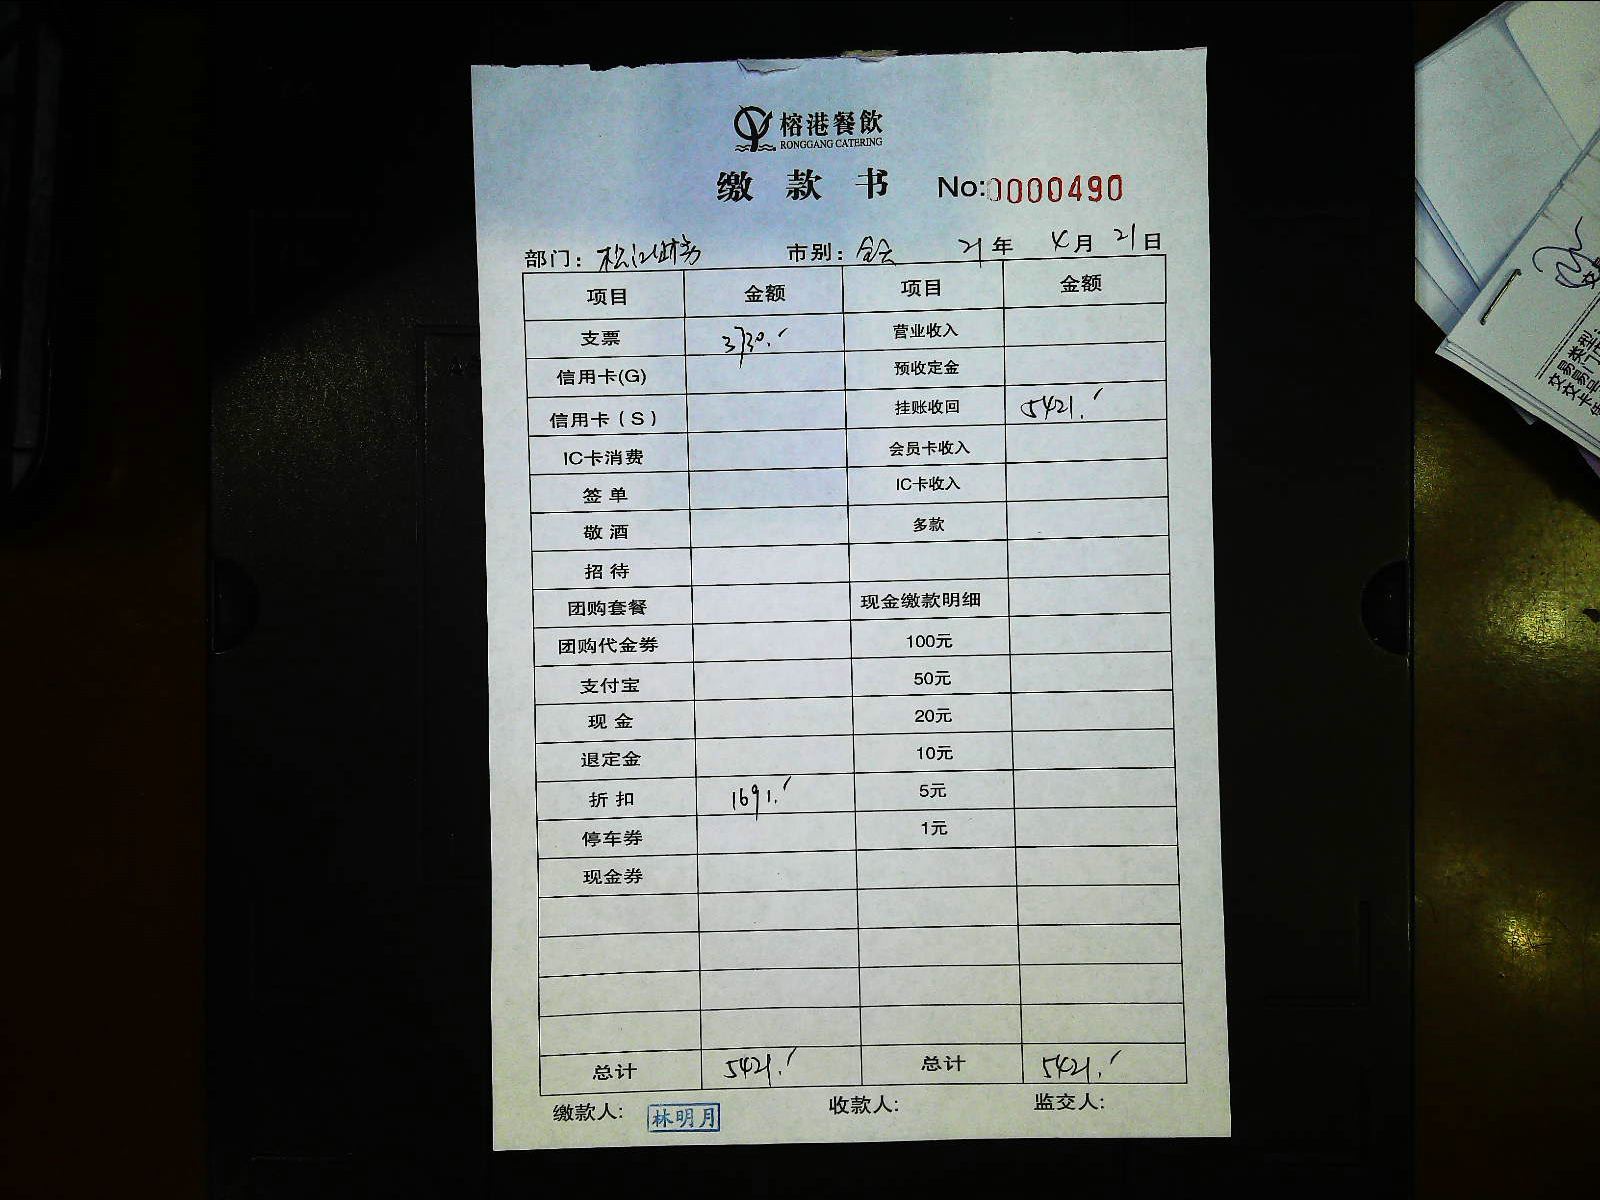 榕港餐飲
RONGGANG CATERING
缴款书 No:0000490
部门：松江财务 市别：全天 21年 4月 21日
项目 金额 项目 金额
支票 3730.- 营业收入
信用卡(G) 预收定金
信用卡（S） 挂账收回 5421.-
IC卡消费 会员卡收入
签单 IC卡收入
敬酒 多款
招待
团购套餐 现金缴款明细
团购代金券 100元
支付宝 50元
现金 20元
退定金 10元
折扣 1691.- 5元
停车券 1元
现金券
总计 5421.- 总计 5421.-
缴款人: 林明月 收款人: 监交人: